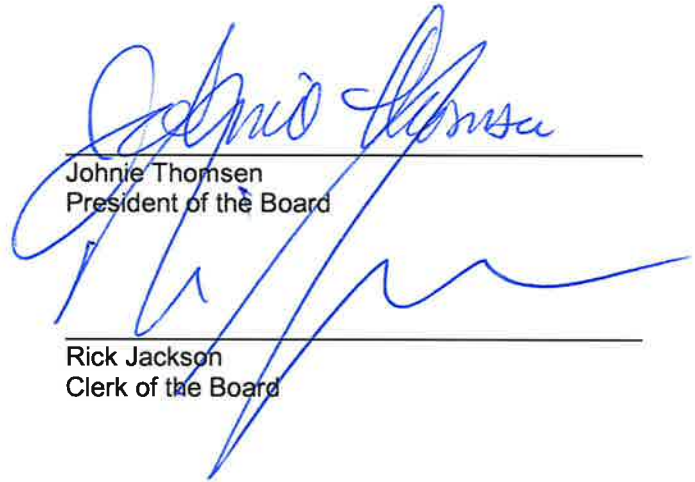 Johnie Thomsen
Johnie Thomsen
President of the Board
Rick Jackson
Clerk of the Board